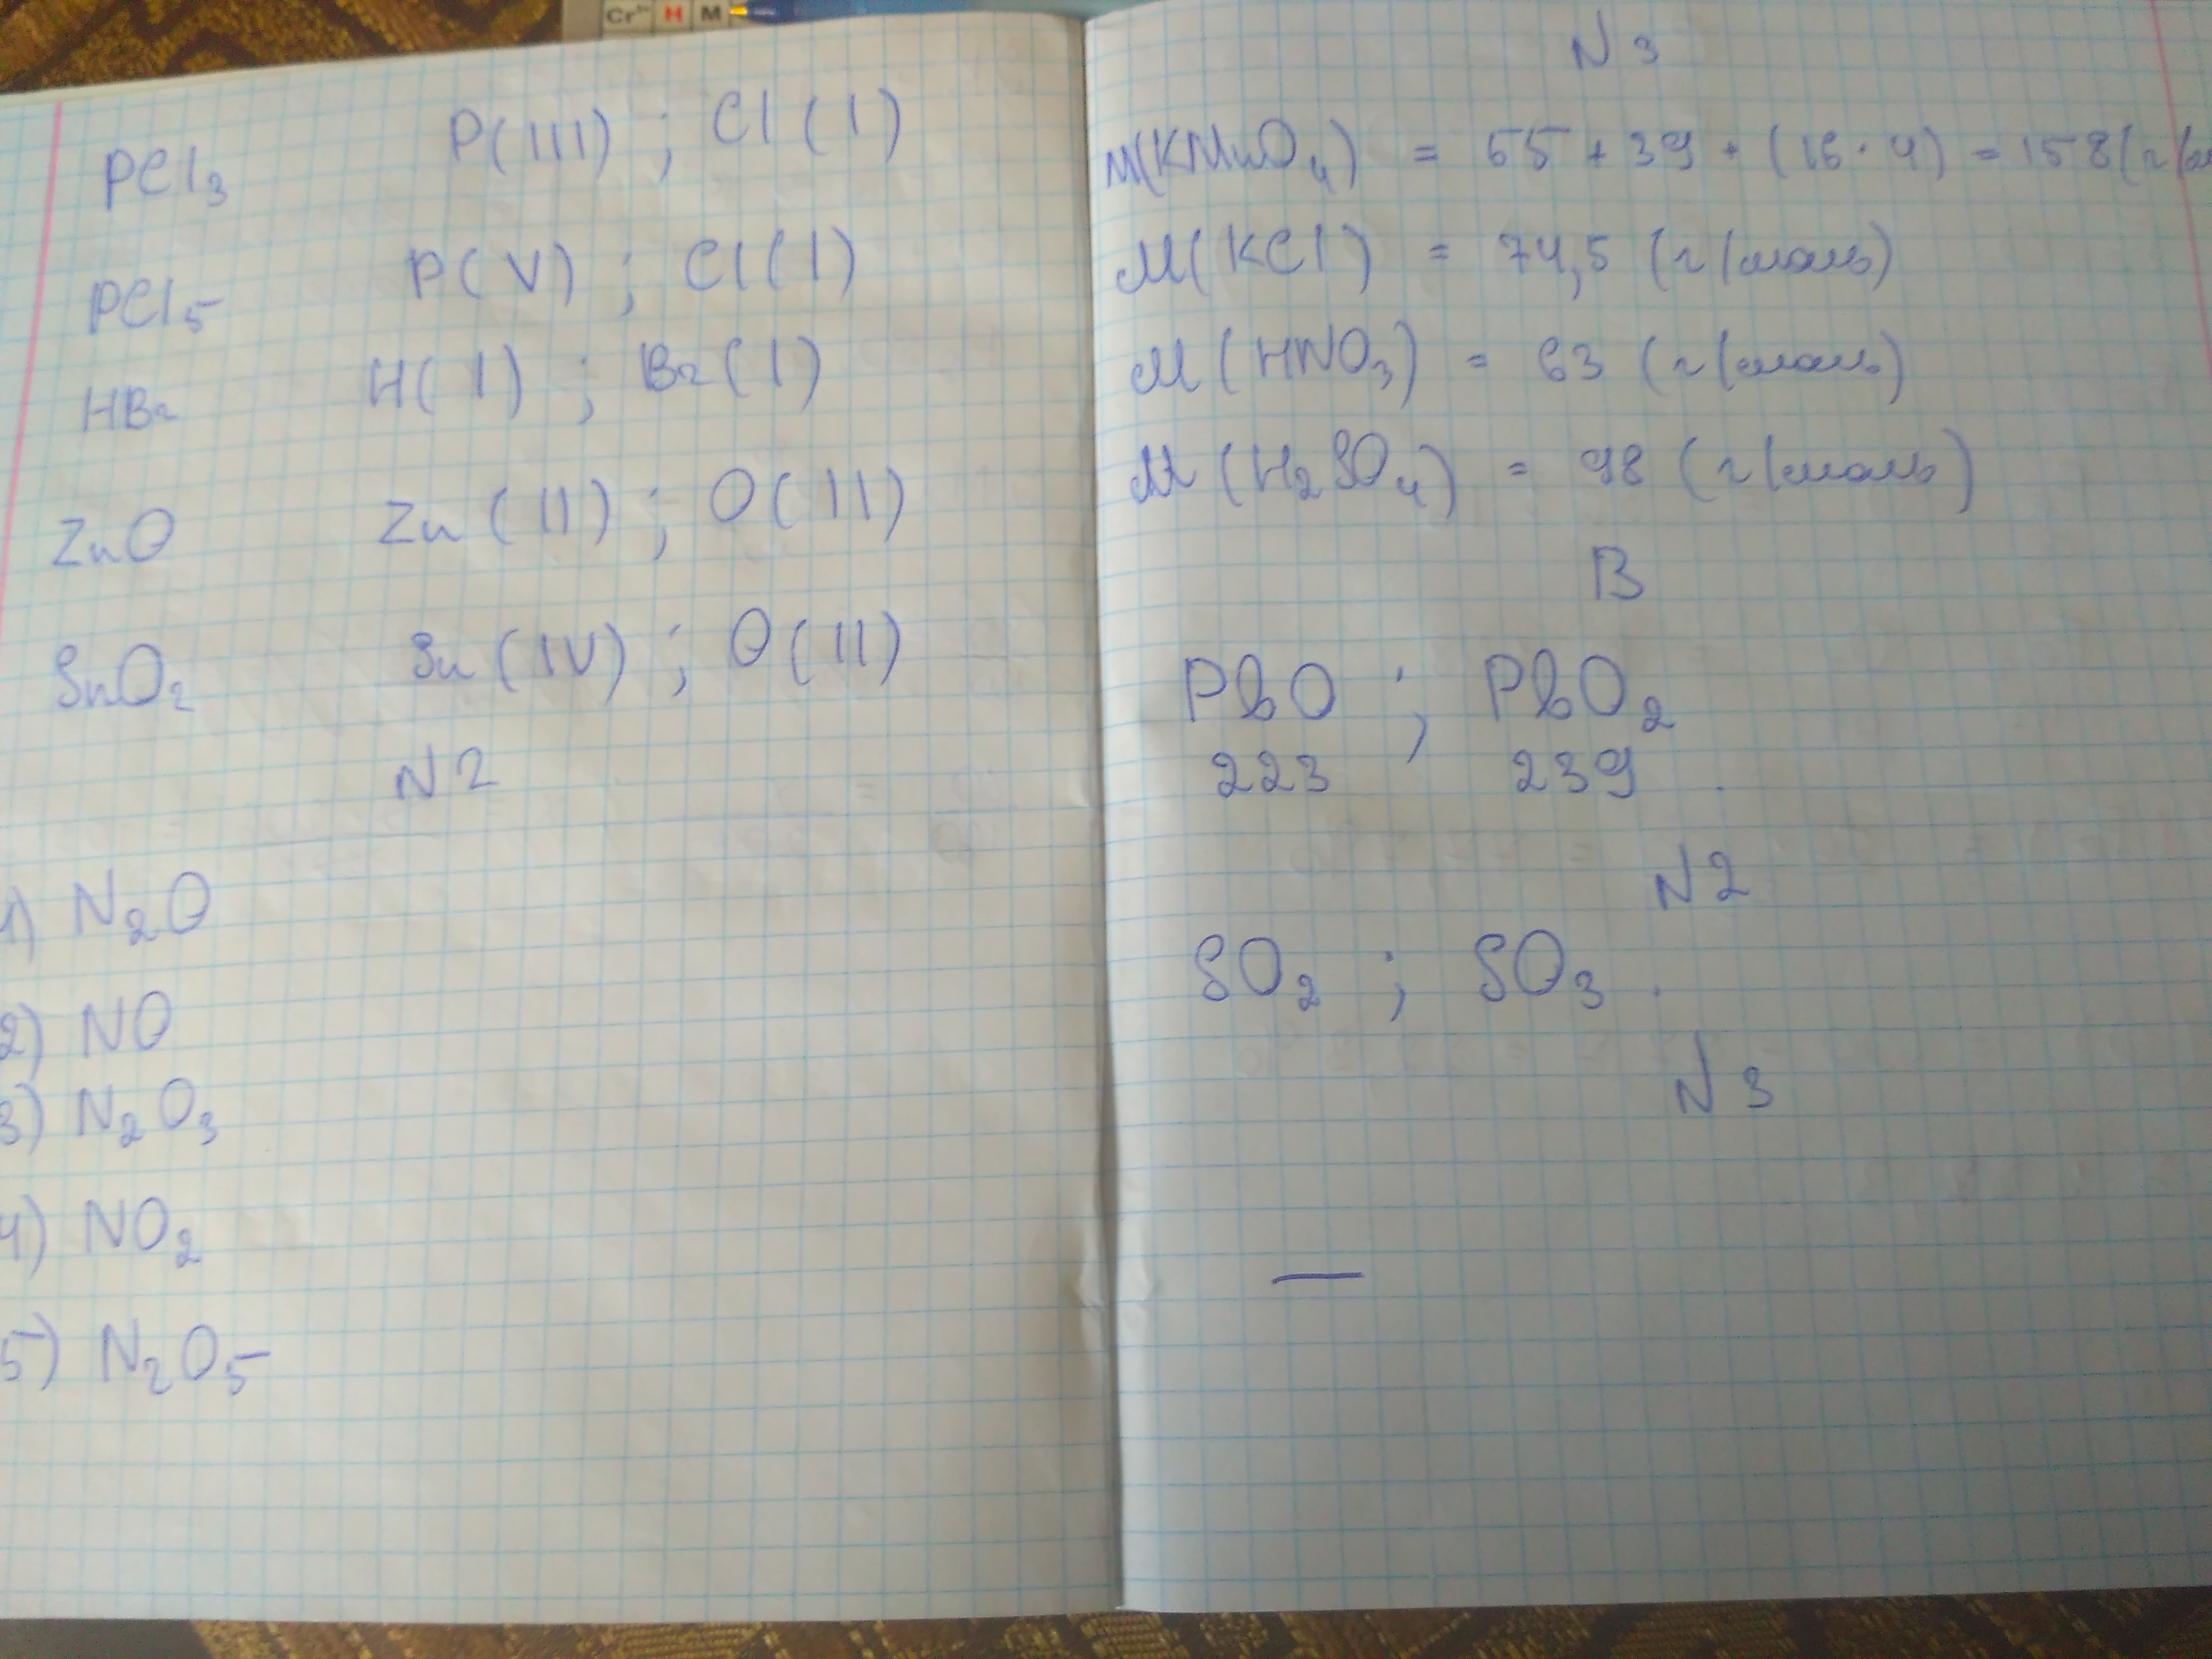 Cr³⁺ H M
PCl₃ P(III) ; Cl(I)
PCl₅ P(V) ; Cl(I)
HBr H(I) ; Br(I)
ZnO Zn(II) ; O(II)
SnO₂ Sn(IV) ; O(II)
N2
1) N₂O
2) NO
3) N₂O₃
4) NO₂
5) N₂O₅
N3
M(KMnO₄) = 55 + 39 + (16·4) = 158(г/м
M(KCl) = 74,5 (г/моль)
M(HNO₃) = 63 (г/моль)
M(H₂SO₄) = 98 (г/моль)
B
PbO ; PbO₂
223 239 .
N2
SO₂ ; SO₃ .
N3
—